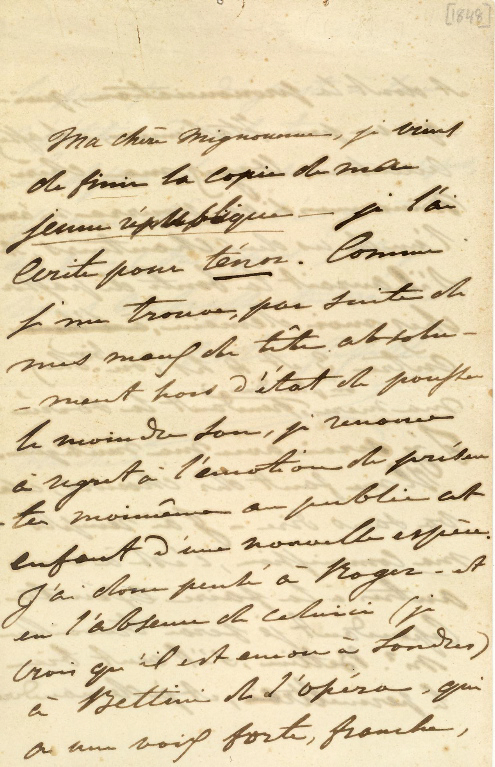 [1848]
Ma chère Mignonne, je viens
de finir la copie de ma
jeune république — je l'ai
écrite pour ténor. Comme
je me trouve, par suite de
mes maux de tête absolu-
-ment hors d'état de pousser
le moindre son, je renonce
à regret à l'émotion de présen
-ter moimême au public cet
enfant d'une nouvelle espèce.
J'ai donc pensé à Roger - et
en l'absence de celuici (je
crois qu'il est encore à Londres)
à Bettini de l'opéra, qui
a une voix forte, franche,